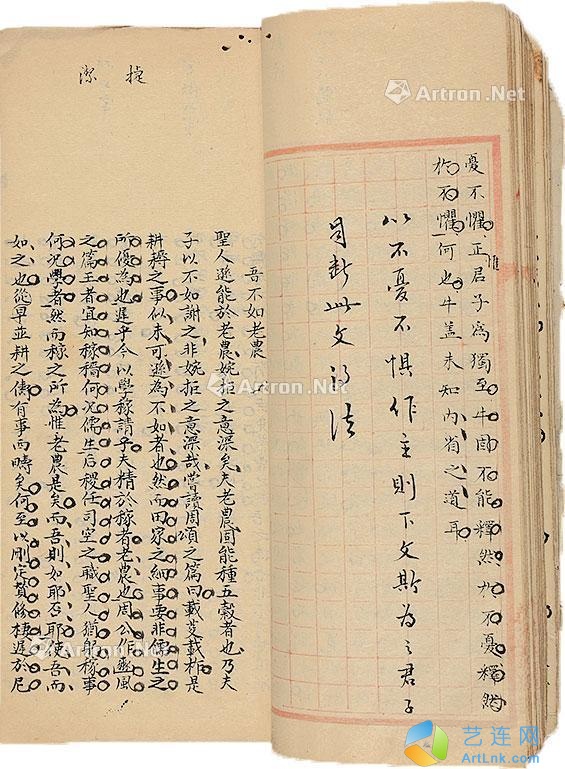 憂不懼、正惟君子為獨至牛固不能釋然於不憂釋然
於不懼何也牛盖未知內省之道耳
以不憂不懼作主則下文斯為之君子
此文得法
捷潔
吾不如老農
聖人遜能於老農婉拒之意深矣夫老農固能種五穀者也乃夫
子以不如謝之非婉拒之意深哉嘗讀周頌之篇曰載芟載柞是
耕耨之事似未可遜為不如者也然而田家之細事要非儒生之
所優為也遲乎今以學稼請乎夫精於稼者老農也周公作豳風
之篇王者宜知稼穡何况儒生后稷任司空之職聖人猶躬稼事
何况學者然而稼之所為惟老農是矣而吾則如耶否耶使吾而
如之也從早並耕之儔有事西疇矣何至以刪定贊修棲遲於尼
Artron.Net
Artron.Net
Artron.Net
Artron.Net
艺连网
ArtLnk.com